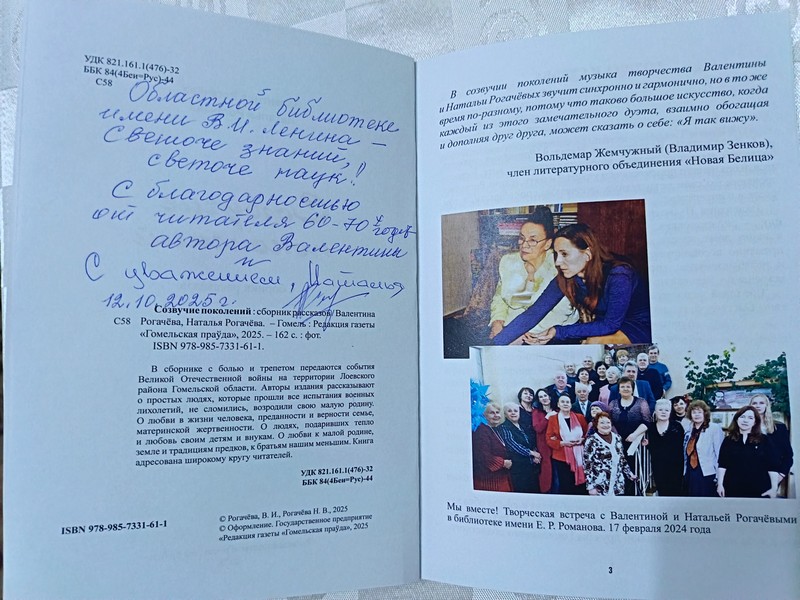 УДК 821.161.1(476)-32
ББК 84(4Беи=Рус)-44
С58
Областной библиотеке
имени В.И. Ленина –
Светоче знаний,
светоче наук!
С благодарностью
от читателя 60-70х годов
автора Валентины
и
С уважением, Наталья
12.10.2025г.
Созвучие поколений : сборник рассказов / Валентина
С58 Рогачёва, Наталья Рогачёва. – Гомель : Редакция газеты
«Гомельская праўда», 2025. – 162 с. : фот.
ISBN 978-985-7331-61-1.
В сборнике с болью и трепетом передаются события
Великой Отечественной войны на территории Лоевского
района Гомельской области. Авторы издания рассказывают
о простых людях, которые прошли все испытания военных
лихолетий, не сломились, возродили свою малую родину.
О любви в жизни человека, преданности и верности семье,
материнской жертвенности. О людях, подаривших тепло
и любовь своим детям и внукам. О любви к малой родине,
земле и традициям предков, к братьям нашим меньшим. Книга
адресована широкому кругу читателей.
УДК 821.161.1(476)-32
ББК 84(4Беи=Рус)-44
ISBN 978-985-7331-61-1
© Рогачёва, В. И., Рогачёва Н. В., 2025
© Оформление. Государственное предприятие
«Редакция газеты «Гомельская праўда», 2025
В созвучии поколений музыка творчества Валентины
и Натальи Рогачёвых звучит синхронно и гармонично, но в то же
время по-разному, потому что таково большое искусство, когда
каждый из этого замечательного дуэта, взаимно обогащая
и дополняя друг друга, может сказать о себе: «Я так вижу».
Вольдемар Жемчужный (Владимир Зенков),
член литературного объединения «Новая Белица»
Мы вместе! Творческая встреча с Валентиной и Натальей Рогачёвыми
в библиотеке имени Е. Р. Романова. 17 февраля 2024 года
3